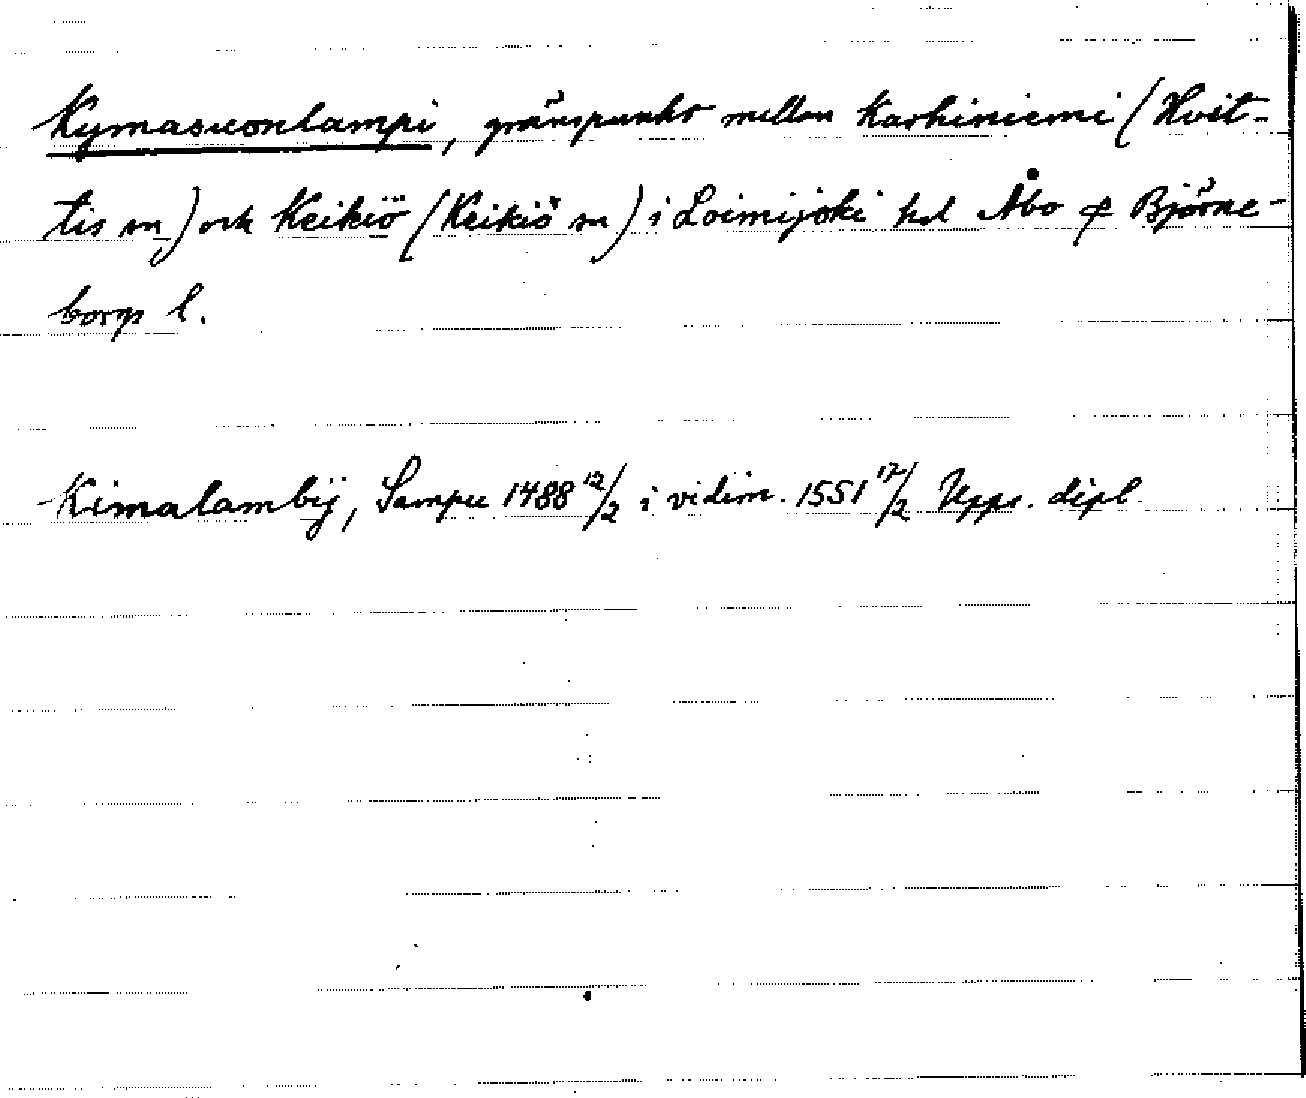 Kymasuonlampi, gränspunkt mellan Karhiniemi (Hvit-
tis sn) och Keikiö (Keikiö sn) i Loimijoki hd Åbo & Björne-
borgs l.
Kimalambij, Sampu 1488 12/2 i vidim. 1551 17/2 Upps. dipl